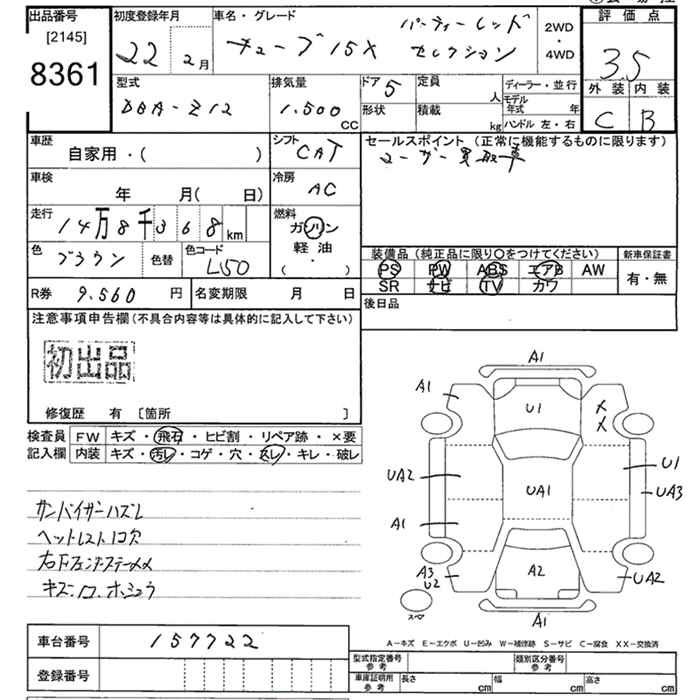 出品番号
[2145]
8361
初度登録年月
22 2月
車名・グレード
キューブ 15X パーティーレッドセレクション
2WD
・
4WD
評価点
3.5
外装 内装
C B
型式
DBA-Z12
排気量
1.500
CC
ドア
5
形状
定員
人
積載
kg
ディーラー・並行
モデル年式 年
ハンドル 左・右
車歴
自家用・( )
シフト
CAT
セールスポイント (正常に機能するものに限ります)
ユーザー買取車
車検
年 月( 日)
冷房
AC
走行
14万8千368km
燃料
ガソリン
軽油
( ・ )
色
ブラウン
色替
色コード
L50
装備品 (純正品に限り〇をつけてください)
PS PW ABS エアB AW
SR ナビ TV カワ
新車保証書
有・無
R券 9.560 円
名変期限 月 日
後日品
注意事項申告欄(不具合内容等は具体的に記入して下さい)
初出品
修復歴 有 [箇所 ]
検査員
記入欄
FW キズ・飛石・ヒビ割・リペア跡・×要
内装 キズ・汚レ・コゲ・穴・スレ・キレ・破レ
サンバイザーハズレ
ヘットレスト1コ欠
キズ.凹.ホシュウ
A1
A1
U1
UA2
UA1
U1
UA3
A1
A3
U2
A2
UA2
スペア
A1
A−キズ E−エクボ U−凹み W−補修跡 S−サビ C−腐食 XX−交換済
車台番号 157722
登録番号
型式指定番号
参考
類別区分番号
参考
車庫証明用
参考
長さ cm
幅 cm
高さ cm